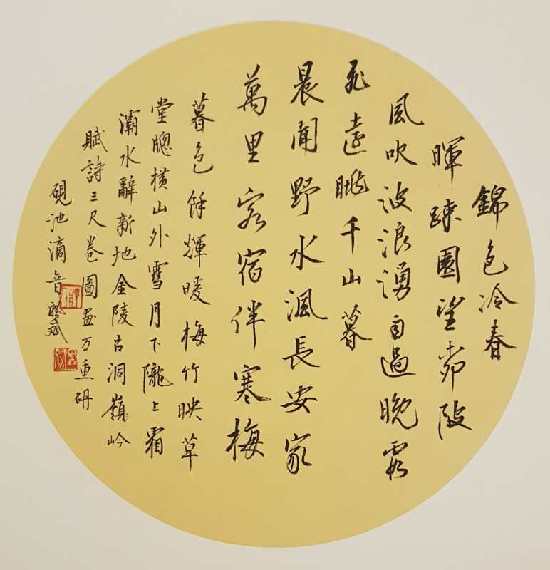 錦色冷春
暉疎園望茆陂
風吹波浪湧自過晚霞
飛遠眺千山暮
晨聞野水渢長安家
萬里客宿伴寒梅
暮色餘輝暖梅竹映草
堂牕橫山外雪月下隴上眉
灞水辭新地金陵古洞嶺吟
賦詩三尺卷圖畫万重研
硯池滴音